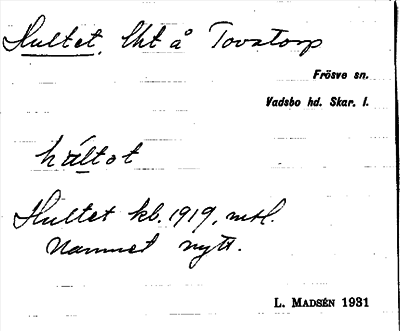 Hultet, lht å Tovatorp
Frösve sn.
Vadsbo hd. Skar. l.
hultot
Hultet kb. 1919, mtl.
Namnet nytt.
L. MADSÉN 1931